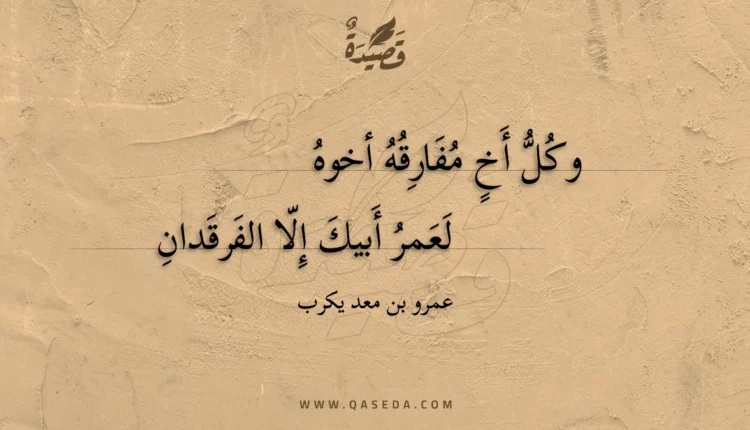 قَصِيْدَةٌ
وكُلُّ أَخٍ مُفَارِقُهُ أخوهُ
لَعَمرُ أَبيكَ إِلّا الفَرقَدانِ
عمرو بن معد يكرب
WWW.QASEDA.COM